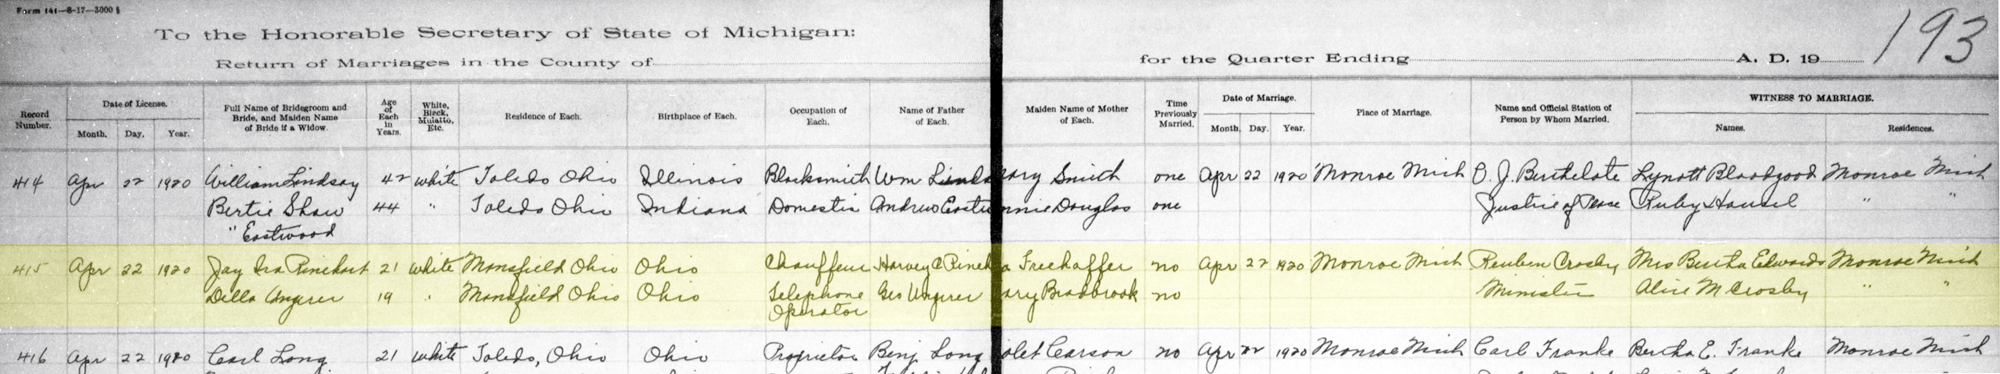 Form 141—8-17—3000
193
To the Honorable Secretary of State of Michigan:
Return of Marriages in the County of
for the Quarter Ending
A. D. 19
Record Number.
Date of License.
Month. Day. Year.
Full Name of Bridegroom and Bride, and Maiden Name of Bride if a Widow.
Age of Each in Years.
White, Black, Mulatto, Etc.
Residence of Each.
Birthplace of Each.
Occupation of Each.
Name of Father of Each.
Maiden Name of Mother of Each.
Time Previously Married.
Date of Marriage.
Month. Day. Year.
Place of Marriage.
Name and Official Station of Person by Whom Married.
WITNESS TO MARRIAGE.
Names. Residences.
414 Apr 22 1920 William Lindsay 42 white Toledo Ohio Illinois Blacksmith Wm Linds ary Smith one Apr 22 1920 Monroe Mich O. J. Berthelote Lynott Bloodgood Monroe Mich
Bertie Shaw 44 " Toledo Ohio Indiana Domestic Andrew Eastw nnie Douglas one Justice of Peace Ruby " "
" Eastwood
415 Apr 22 1920 Jay Ira Rinehart 21 white Mansfield Ohio Ohio Chauffeur Harvey C Rineh a Freehaffer no Apr 22 1920 Monroe Mich Reuben Crosby Mrs Bertha Edwards Monroe Mich
Della Ungerer 19 " Mansfield Ohio Ohio Telephone Geo Ungerer ary Bradbrook no Minister Alice M Crosby " "
Operator
416 Apr 22 1920 Carl Long 21 white Toledo, Ohio Ohio Proprietor Benj Long olet Carson no Apr 22 1920 Monroe Mich Carl Franke Bertha E. Franke Monroe Mich